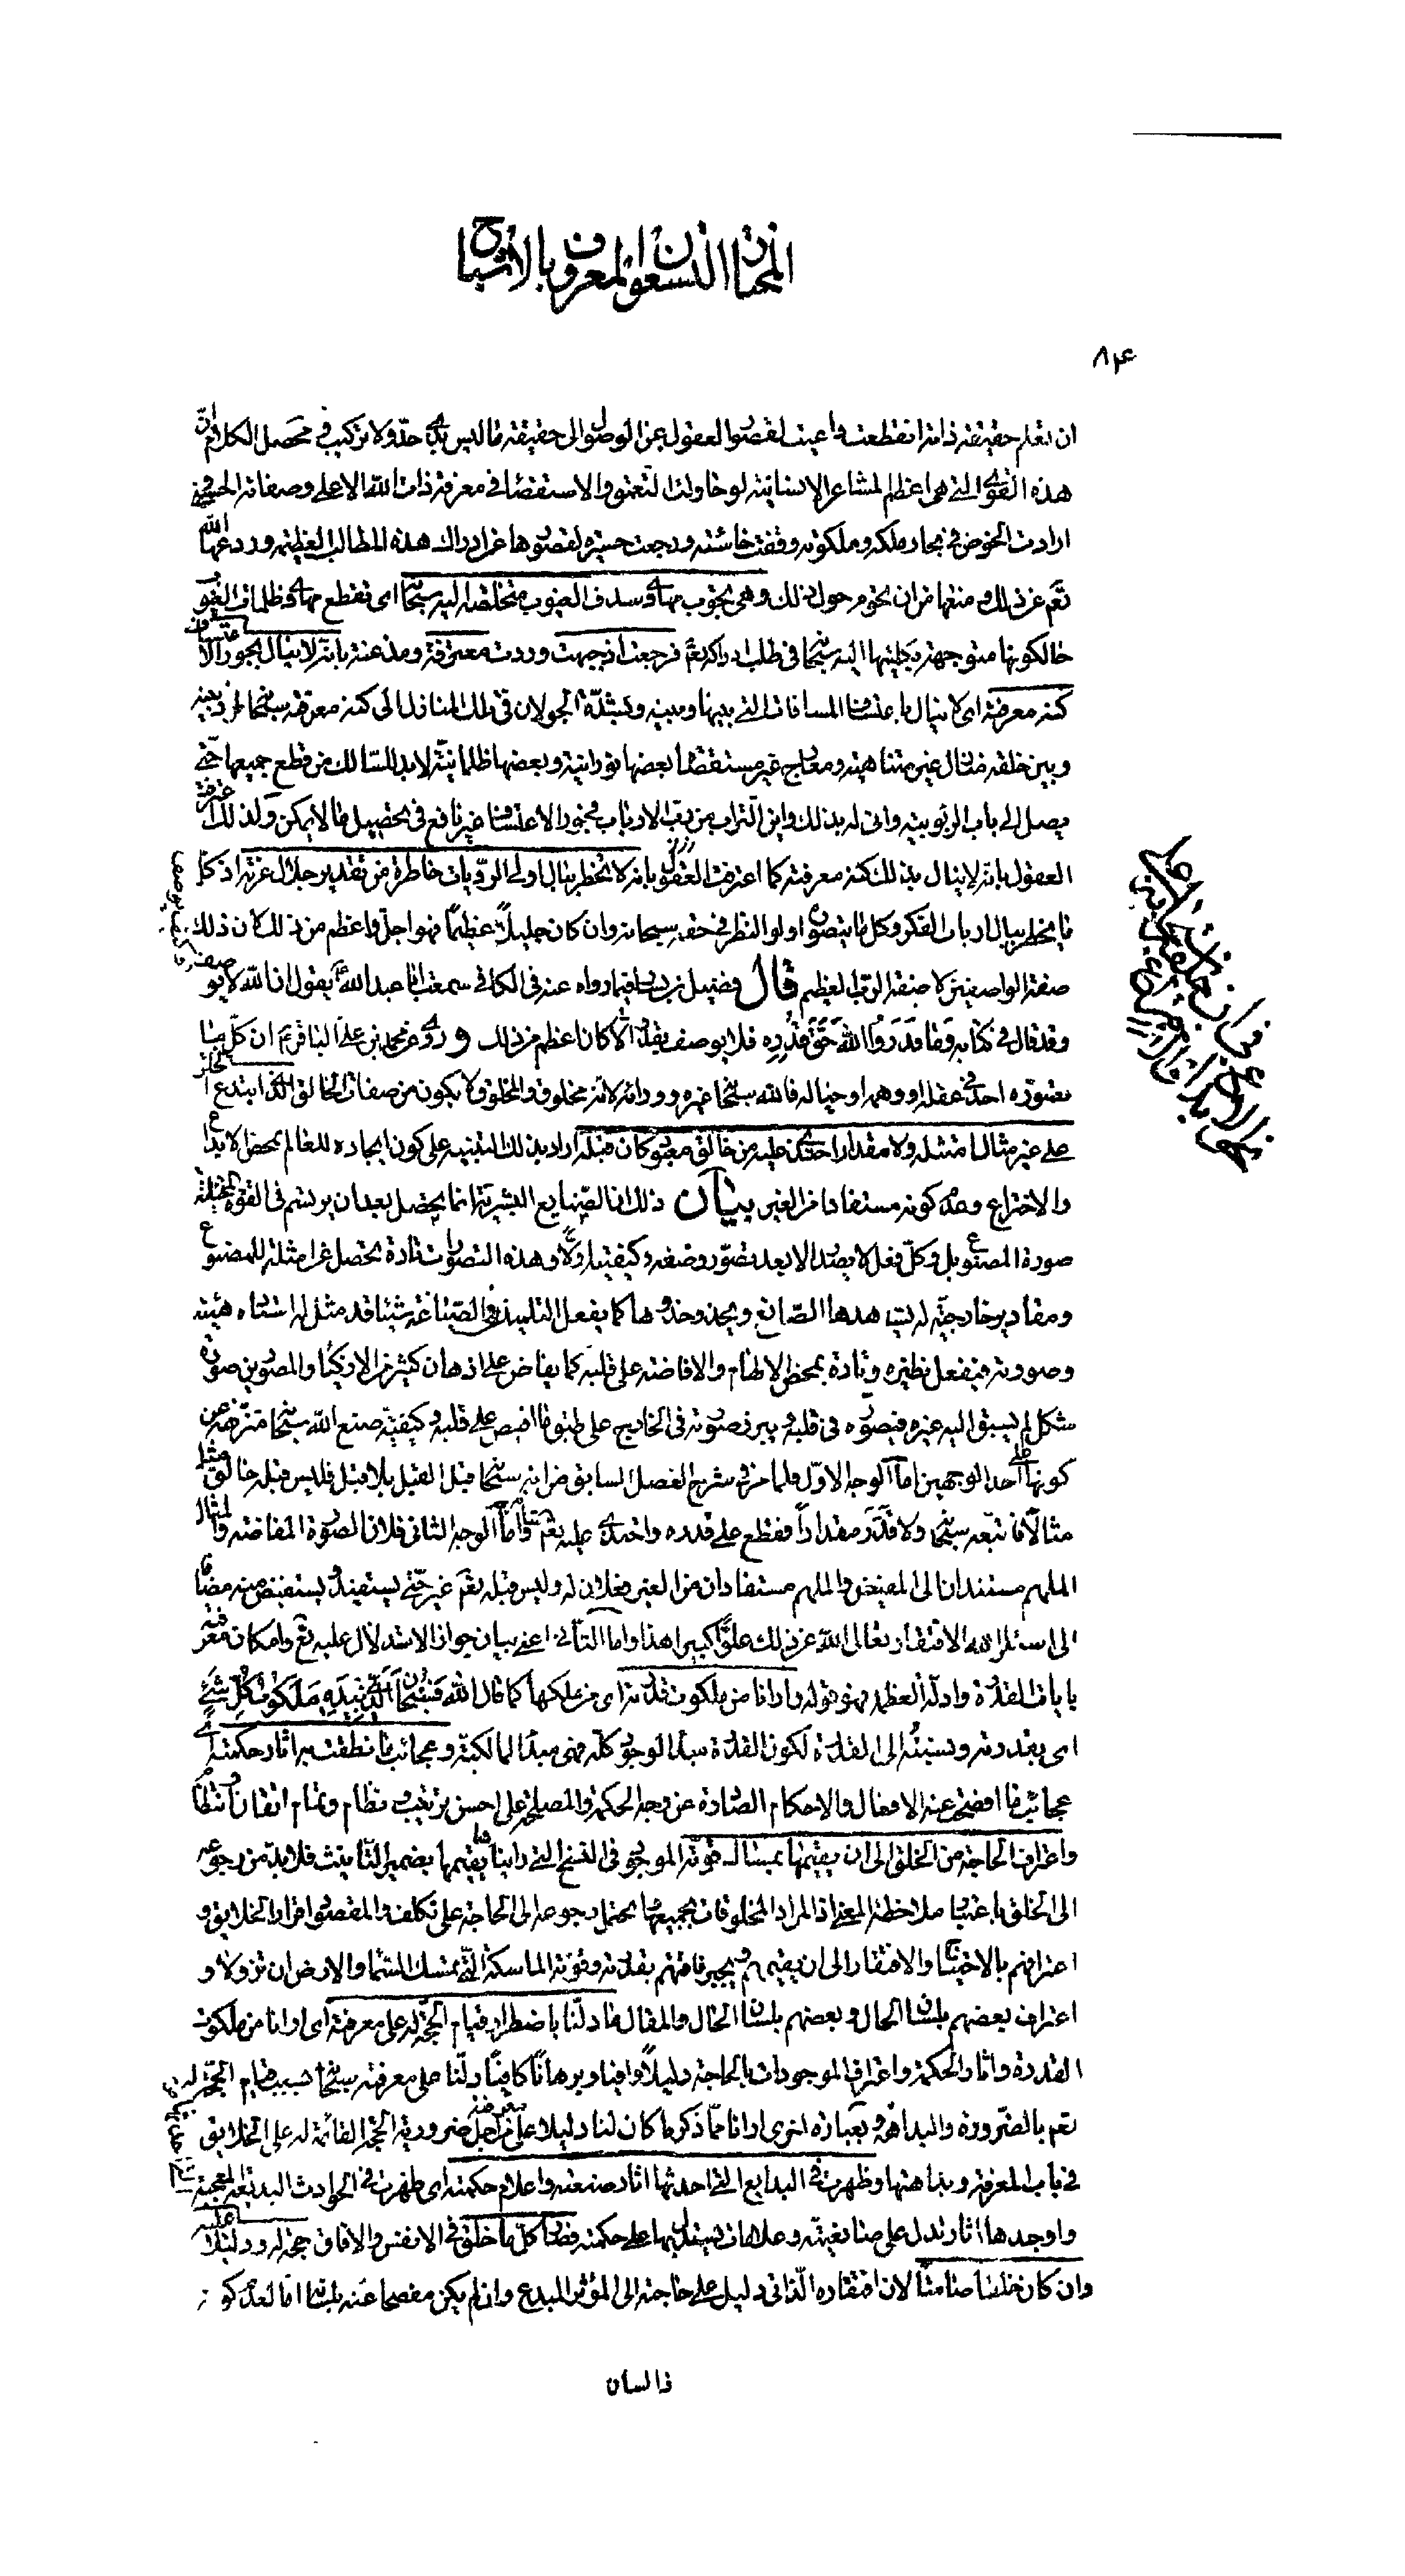 المختار التسعون المعروف بالأشباح
٨٤
ان تعلم حقيقة ذاته انقطعت واعيت لقصور العقول عن الوصول الى حقيقة ما ليس بذى حدّ ولا تركيب فمحصل الكلام انّ
هذه القوى التى هى اعظم المشاعر الانسانية لو حاولت التعمق والاستقصاء فى معرفة ذات الله الاعلى وصفاته الحسنى
ارادت الخوض فى بحار ملكه وملكوته وقفت خاسئة ورجعت حسيرة لقصورها عن ادراك هذه المطالب العظيمة وردعها الله
تعم عن ذلك ومنعها من ان تحوم حول ذلك وهى تجوب مهاوى سدف الغيوب متخلصة اليه سبحانه اى تقطع مهاوى ظلمات الغيوب
حالكونها متوجهة بكليتها اليه سبحانه فى طلب ادراكه تعم فرجعت اذ جبهت وردت معترفة ومذعنة بانه لا ينال بجور الاعتساف
كنه معرفته اى لا ينال باعتساف المسافات التى بينها وبينه وبشدّة الجولان فى تلك المنازل الى كنه معرفته سبحانه اذ بينه
وبين خلقه منازل غير متناهية ومعارج غير مستقصاة بعضها نورانية وبعضها ظلمانية لابد للسالك من قطع جميعها حتى
يصل الى باب الربوبية وانى له بذلك واين التراب من رب الارباب فجور الاعتساف غير نافع فى تحصيل ما لا يمكن ولذلك اعترفت
العقول بانه لا ينال بذلك كنه معرفته كما اعترفت العقول بانه لا تخطر ببال اولى الرويّات خاطرة من تقدير جلال عزته اذ كل
ما يخطر ببال ارباب الفكر وكل ما يتصوره اولو النظر فى حقه سبحانه وان كان جليلاً عظيمًا فهو اجلّ واعظم من ذلك كان ذلك
صفة الواصفين لا صفة الرب العظيم قال فضيل بن يسار فيما رواه عنه فى الكافى سمعت ابا عبد الله ع يقول ان الله لا يوصف
وكيف يوصف
وقد قال فى كتابه وَمَا قَدَرُوا اللهَ حَقَّ قَدْرِهِ فلا يوصف بقدر الا كان اعظم من ذلك وروى عن محمد بن على الباقر ع ان كل ما
يتصوره احد فى عقله او وهمه او خياله فالله سبحانه غيره وورائه لانه مخلوق والمخلوق لا يكون من صفات الخالق الذى ابتدع الخلق
على غير مثال امتثله ولا مقدار احتذى عليه من خالق معبود كان قبله اراد بذلك التنبيه على كون ايجاده للعالم بمحض الابداع
والاختراع وعدم كونه مستفادا من الغير بيان ذلك ان الصنايع البشرية انما يحصل بعد ان يرتسم فى القوة المتخيلة
صورة المصنوع بل وكل فعل لا يصدر الا بعد تصوّر وضعه وكيفيته اولاً وهذه التصورات تارة تحصل عن امثلة للمصنوع
ومقادير خارجية له يشاهدها الصانع ويحذو حذوها كما يفعل التلميذ فى الصناعة شيئا قد مثل له استاده هيئته
وصورته فيفعل نظيره وتارة بمحض الالهام والافاضة على قلبه كما يفاض على اذهان كثير من الاذكياء والمصورين صورة
شكل لم يسبق اليه غيره فيصوره فى قلبه ويبرز صورته فى الخارج على طبق ما افيض على قلبه وكيفية صنع الله سبحانه منزهة عن
كونها على احد الوجهين اما الوجه الاول فلما مر فى شرح الفصل السابق من انه سبحانه قبل القبل بلا قبل فليس قبله خالق مثل
مثالًا فاتبعه سبحانه ولا قدّر مقداراً فقطع على قدره واحتذى عليه تعم واما الوجه الثانى فلان الصورة المفاضة والمثال
الملهم مستندان الى المفيض والملهم مستفادان من الغير فعلان له وليس قبله تعم غير حتى يستفيد او يستفيض منه مضافا
الى استلزامه الافتقار تعالى الله عن ذلك علوًّا كبيرا هذا واما الثانى اعنى بيان جواز الاستدلال عليه تعم وامكان معرفته
بايات القدرة وادلة العظمة فهو قوله وارانا من ملكوت قدرته اى من ملكها كما قال الله فَسُبْحَانَ الَّذِي بِيَدِهِ مَلَكُوتُ كُلِّ شَيْءٍ
اى بقدرته ونسبته الى القدرة لكون القدرة مبدأ الوجود كله فهى مبدأ المالكية وعجائب ما نطقت به اثار حكمته اى
عجائب ما افصح عنه الافعال والاحكام الصادرة عن وجه الحكمة والمصلحة على احسن ترتيب ونظام وتمام اتقان وانتظام
واعتراف الحاجة من الخلق الى ان يقيمها بمساك قوته الموجود فى النسخ التى رايناها يقيمها بضمير التانيث فلابد من رجوعه
الى الخلق باعتبار ملاحظة المعنى اذ المراد المخلوقات جميعها يحتمل رجوعه الى الحاجة على تكلف والمقصود اقرار الخلايق و
اعترافهم بالاحتياج والافتقار الى ان يقيمهم ويجبر فاقتهم بقدرته وقوته الماسكة التى تمسك السماء والارض ان تزولا و
اعتراف بعضهم بلسان الحال وبعضهم بلسان الحال والمقال ما دلّنا باضطرار قيام الحجة له على معرفته اى ارانا من ملكوت
القدرة واثار الحكمة واعتراف الموجودات بالحاجة دليلاً وافيا وبرهانًا كافيًا دلّنا على معرفته سبحانه بسبب قيام الحجة له
تعم بالضرورة والبداهة وبعبارة اخرى ارانا مما ذكر ما كان لنا دليلا على معرفته من اجل ضرورية الحجة القائمة له على الخلايق
فى باب المعرفة وبداهتها وظهرت فى البدايع التى احدثها اثار صنعته واعلام حكمته اى ظهرت فى الحوادث البديعة المعجبة
واوجدها اثار تدل على صانعيته وعلامات يستدل بها على حكمته فصار كل ما خلق فى الانفس والافاق حجة له ودليلا عليه
وان كان خلقا صامتًا لان افتقاره الذاتى دليل على حاجته الى المؤثر المبدع وان لم يكن مفصحا عنه بلسانه اما لعدم كونه
ذا لسان